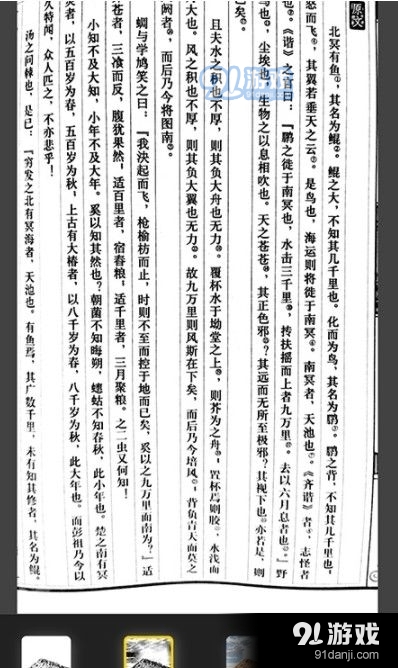 原冥
北冥有鱼②，其名为鲲③。鲲之大，不知其几千里也。化而为鸟，其名为鹏④。鹏之背，不知其几千里也；
怒而飞⑤，其翼若垂天之云⑥。是鸟也，海运则将徙于南冥⑦。南冥者，天池也⑧。《齐谐》者⑨，志怪者
也⑩。《谐》之言曰：『鹏之徙于南冥也，水击三千里，抟扶摇而上者九万里，去以六月息者也。』野
马也，尘埃也，生物之以息相吹也。天之苍苍，其正色邪？其远而无所至极邪？其视下也亦若是，则
已矣。
且夫水之积也不厚，则其负大舟也无力。覆杯水于坳堂之上，则芥为之舟；置杯焉则胶，水浅而
大也。风之积也不厚，则其负大翼也无力。故九万里则风斯在下矣，而后乃今培风；背负青天而莫之
阏者，而后乃今将图南。
蜩与学鸠笑之曰：『我决起而飞，枪榆枋而止，时则不至而控于地而已矣，奚以之九万里而南为？』适
苍者，三飡而反，腹犹果然；适百里者，宿舂粮；适千里者，三月聚粮。之二虫又何知！
小知不及大知，小年不及大年。奚以知其然也？朝菌不知晦朔，蟪蛄不知春秋，此小年也。楚之南有冥
灵者，以五百岁为春，五百岁为秋；上古有大椿者，以八千岁为春，八千岁为秋，此大年也。而彭祖乃今以
久特闻，众人匹之，不亦悲乎！
汤之问棘也，是已：『穷发之北有冥海者，天池也。有鱼焉，其广数千里，未有知其修者，其名为鲲。
91游戏
91游戏
91danji.com